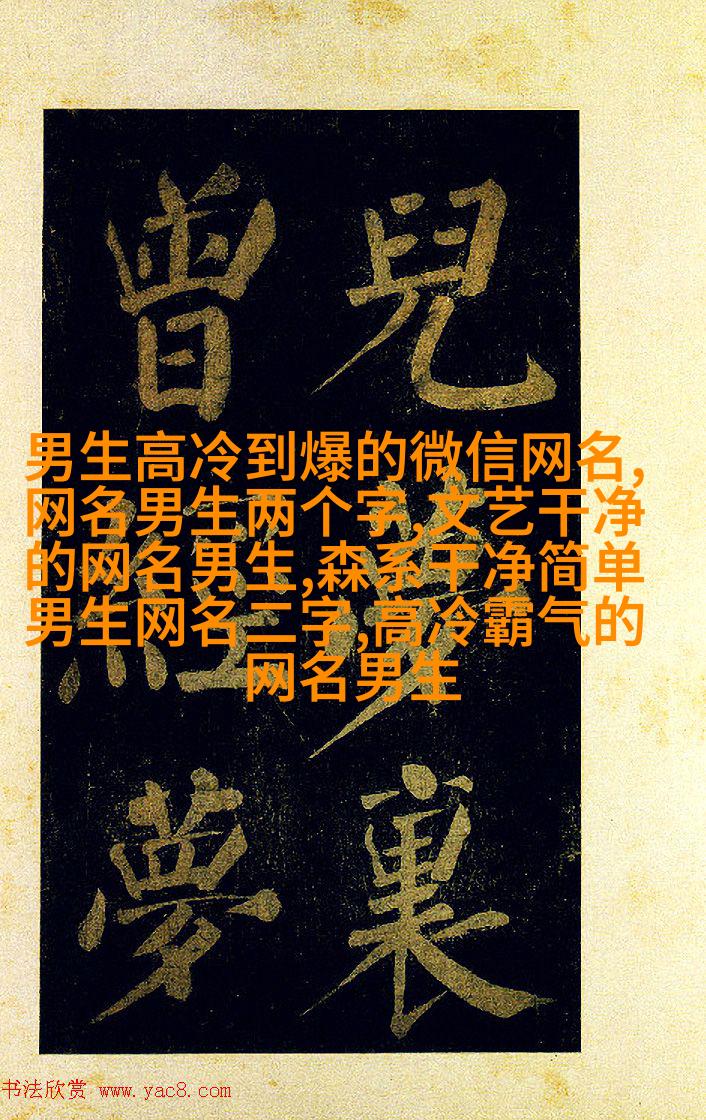 兒
裏
曾
經
夢
男生高冷到爆的微信网名,
网名男生两个字,文艺干净
的网名男生,森系干净简单
男生网名二字,高冷霸气的
网名男生
书法欣赏 www.yac8.com